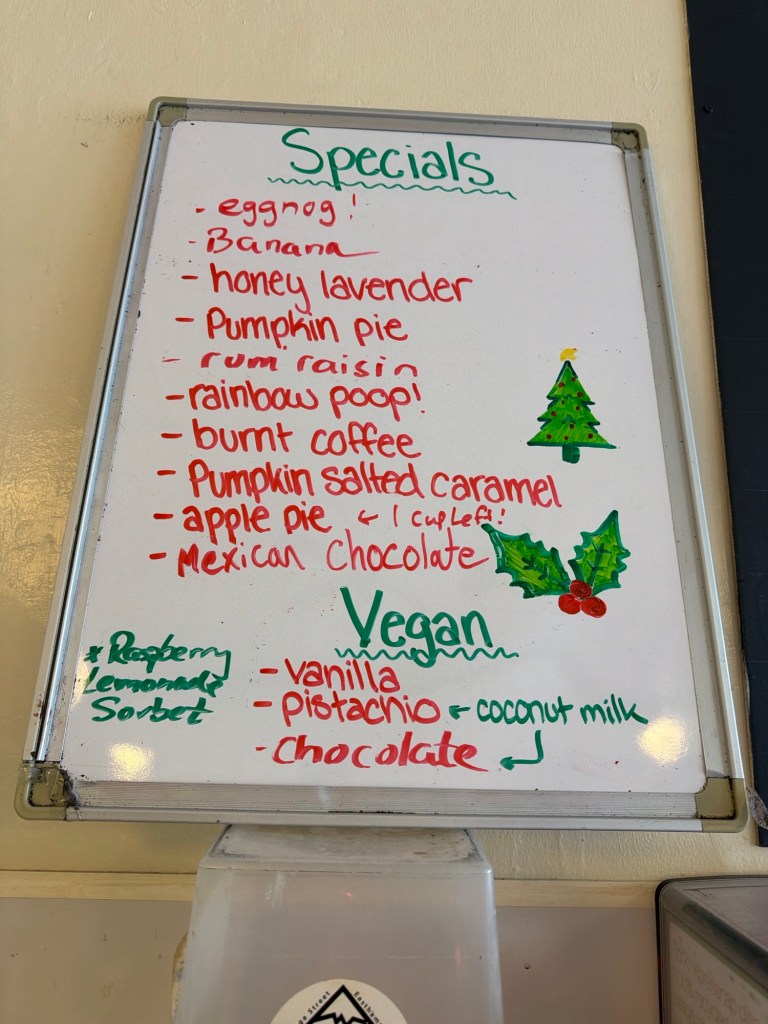 Specials
- eggnog!
- Banana
- honey lavender
- Pumpkin pie
- rum raisin
- rainbow poop!
- burnt coffee
- Pumpkin salted caramel
- apple pie ← 1 cup left!
- Mexican Chocolate
Vegan
* Raspberry
Lemonade
Sorbet
- vanilla
- Pistachio ← coconut milk
- Chocolate ↵
Street